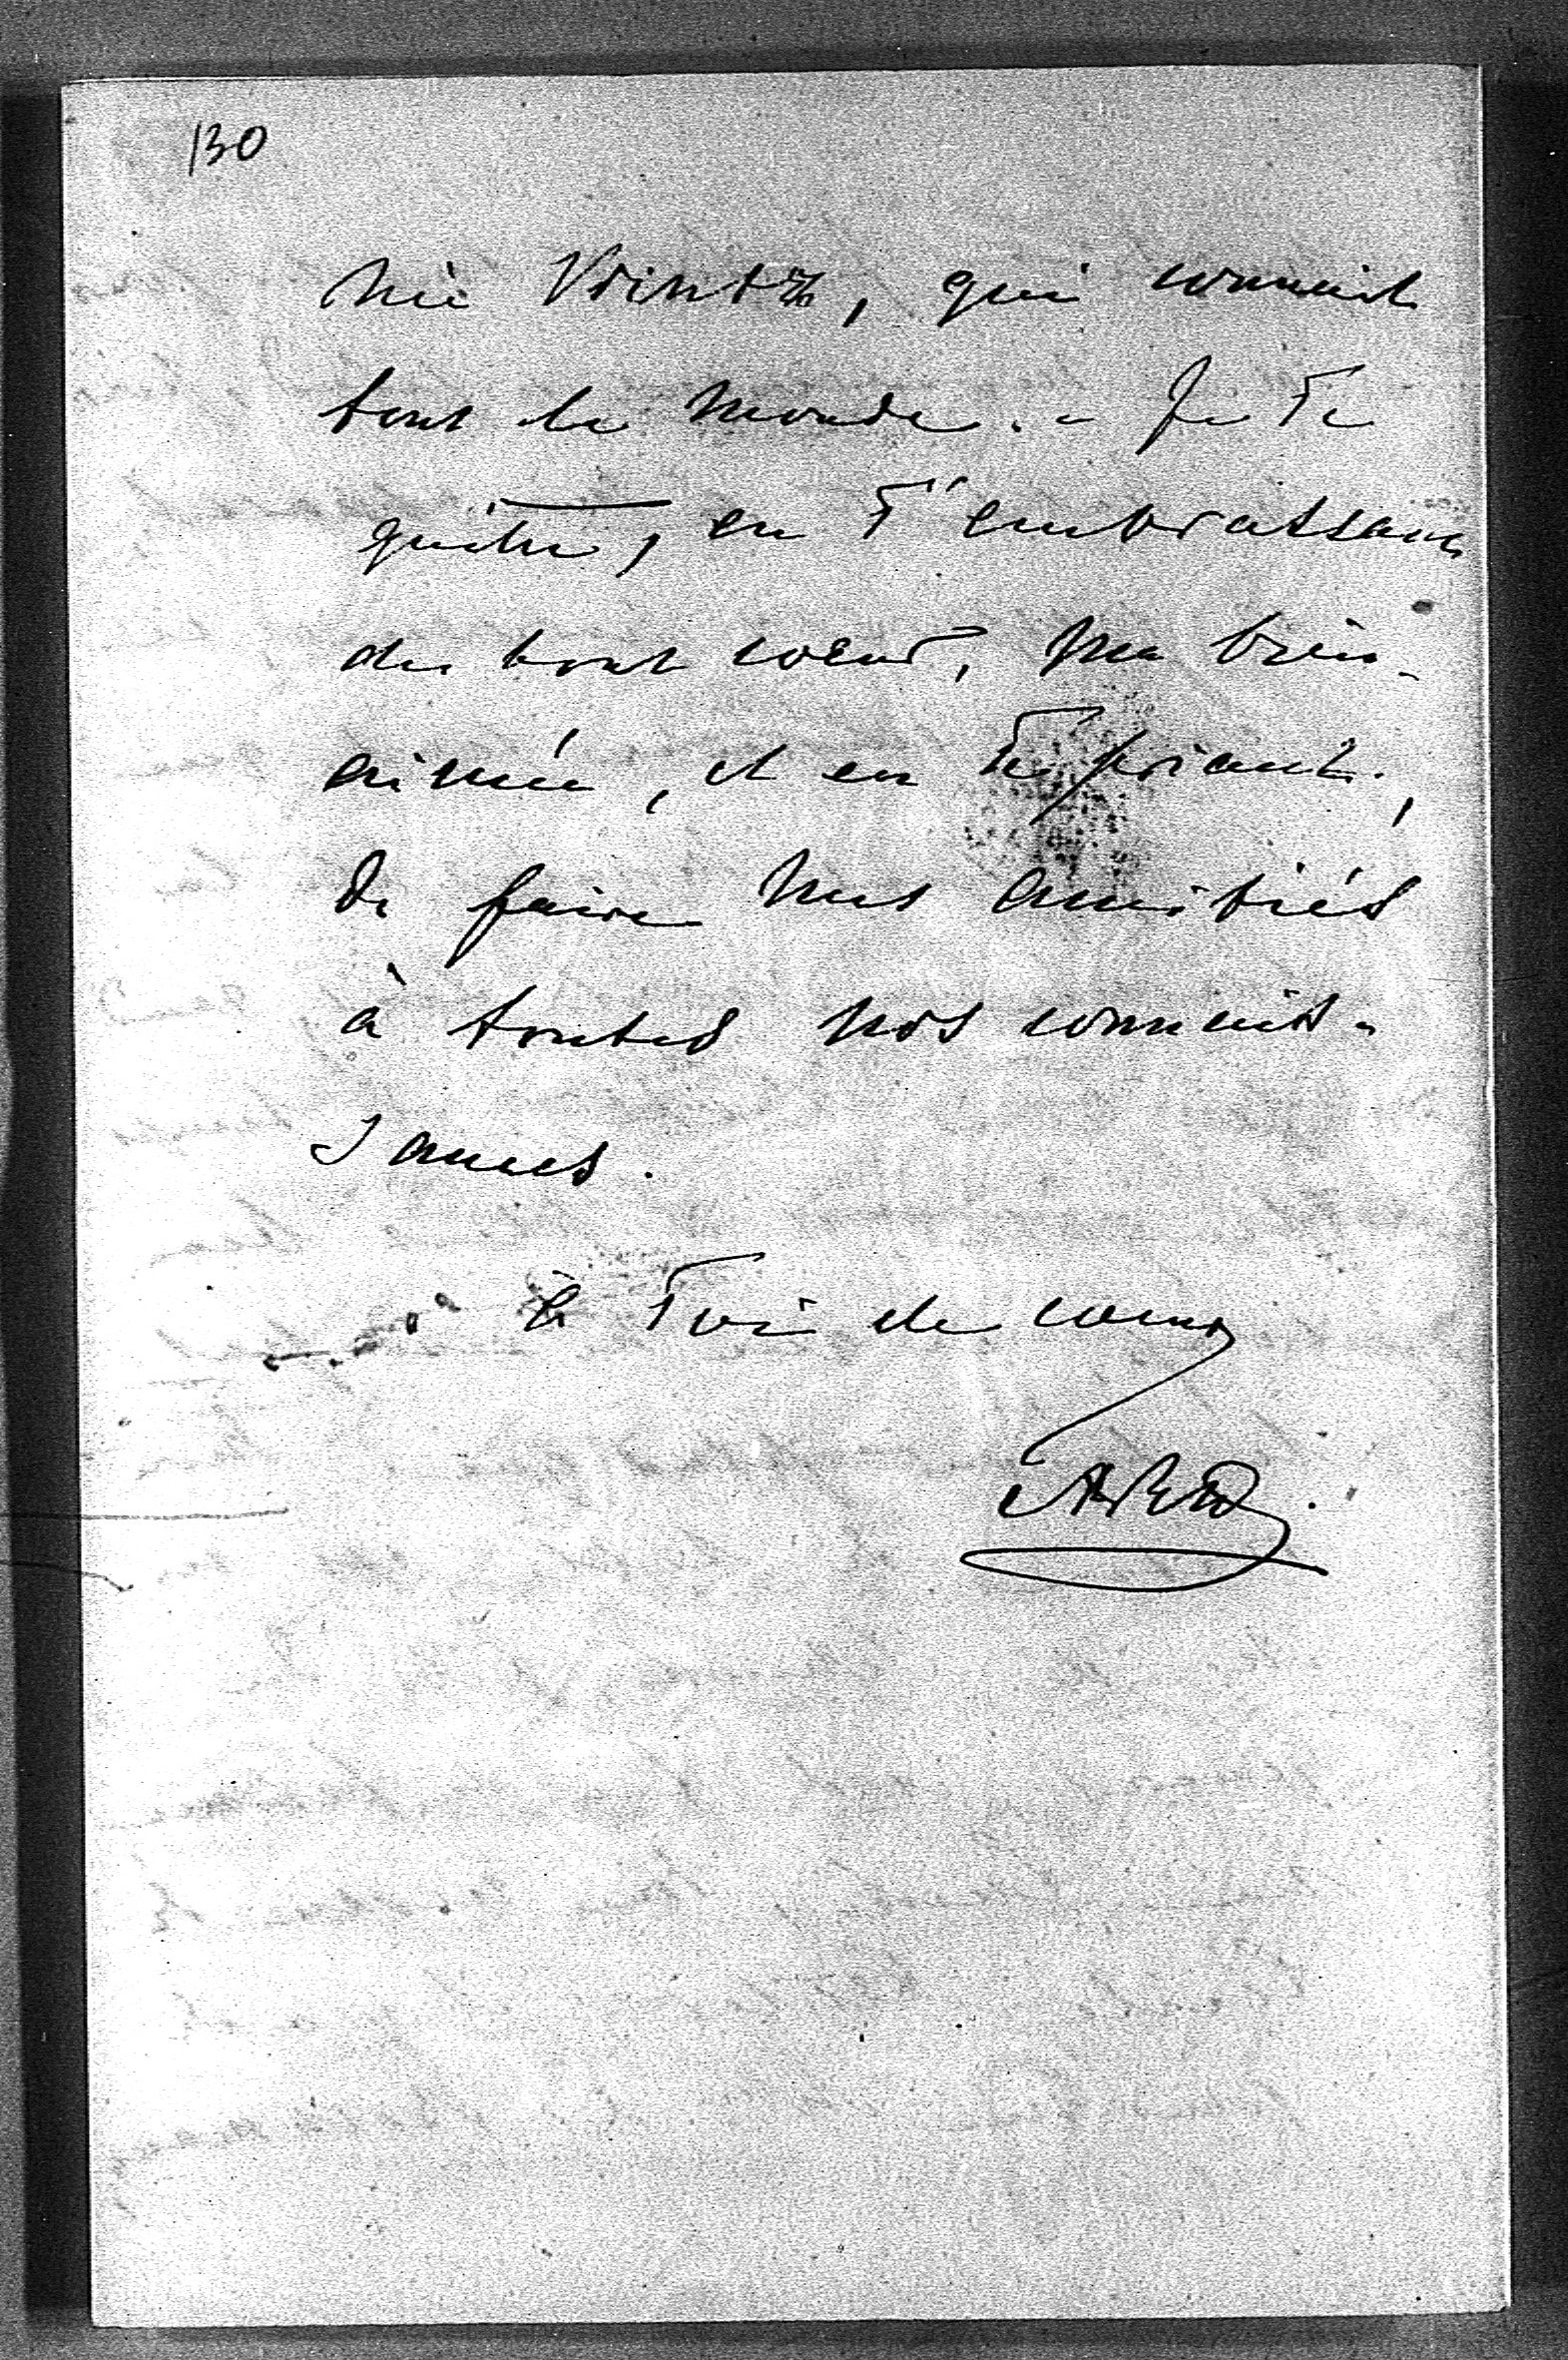 130
nie Vrintz, qui connait
tout le monde. - Je te
quitte, en t'embrassant
de tout coeur, ma bien-
aimée, et en te priant,
de faire mes amitiés
à toutes nos connais-
sances.
à toi de coeur